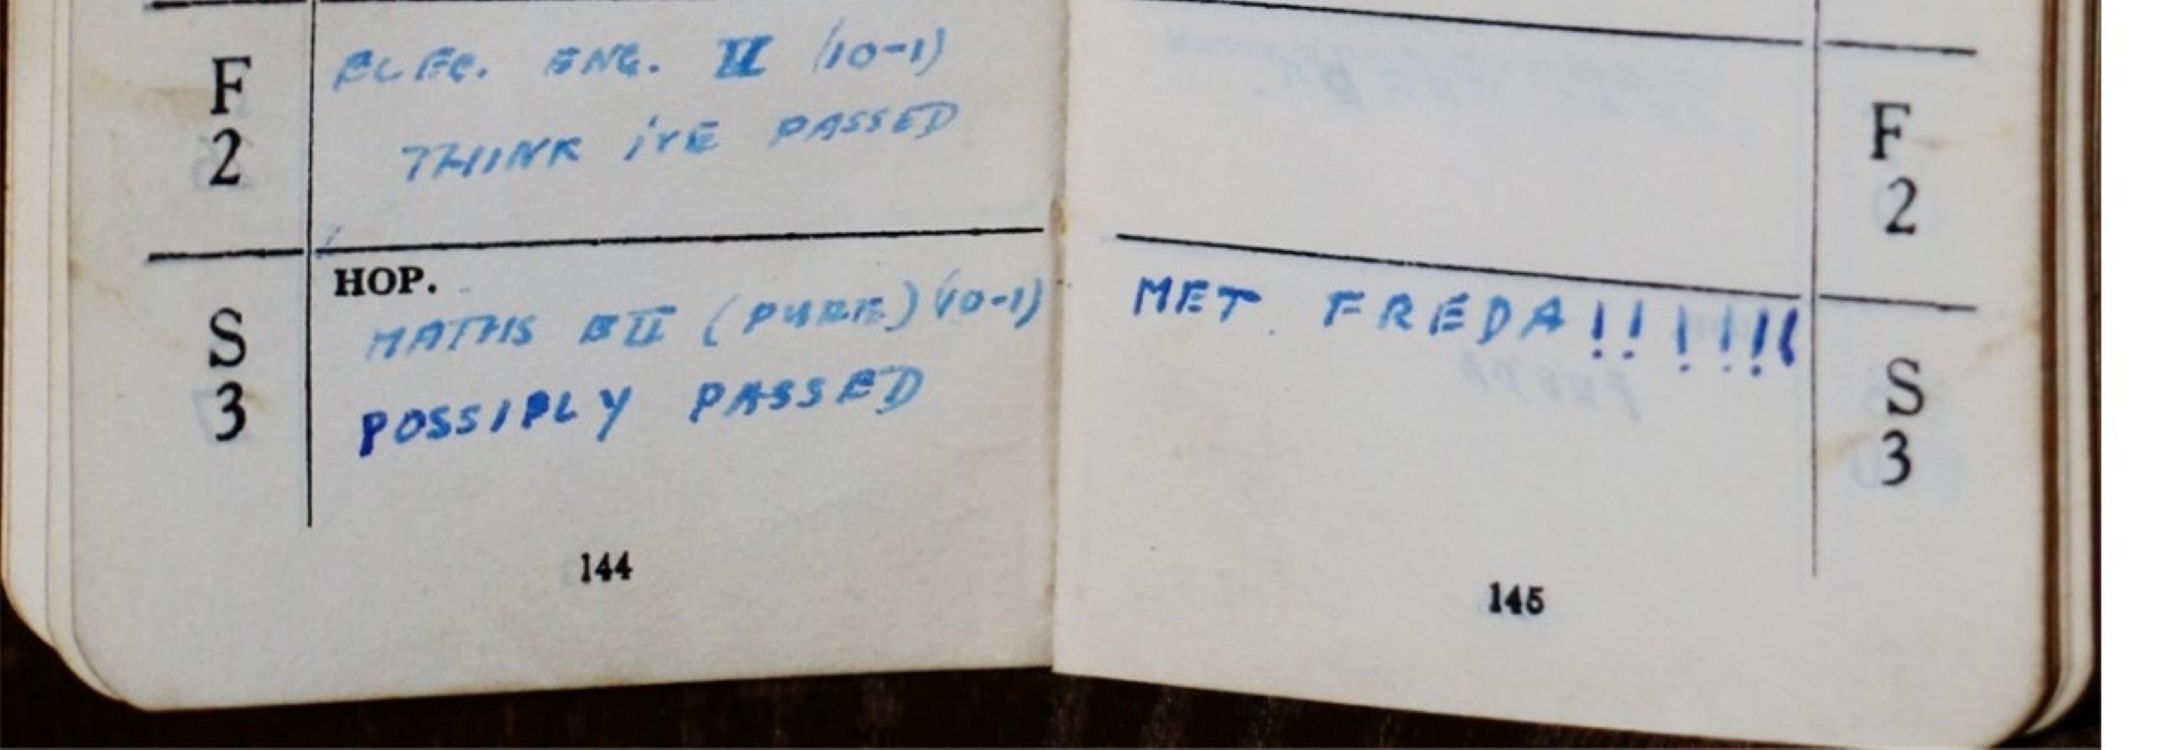 F
2
ELEC. ENG. II (10-1)
THINK I'VE PASSED
S
3
HOP.
MATHS BII (PURE) (10-1)
POSSIBLY PASSED
144
F
2
MET FREDA!!!!!!
S
3
145